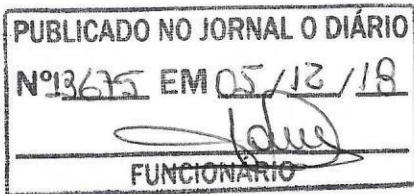 PUBLICADO NO JORNAL O DIÁRIO
Nº 13675 EM 05/12/18
FUNCIONÁRIO